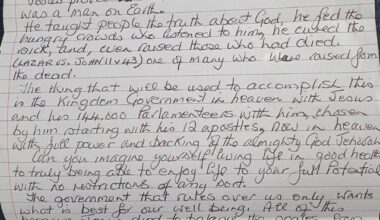 was a man on Earth.
He taught people the truth about God, he fed the
hungry crowds who listened to him, he cured the
sick, and, even raised those who had died.
(LAZARUS. JOHN 11 v 43) one of many who were raised from
the dead.
The thing that will be used to accomplish this
is the Kingdom Government in heaven with Jesus
and his 144,000 Parlamenteers with him, chosen
by him starting with his 12 apostles, now in heaven
with full power and backing of the almighty God Jehovah
Can you imagine yourself living life in good health
to truly being able to enjoy life to your full Potential
with no restrictions of any sort.
The government that rules over us only wants
what is best for our well being. All of this